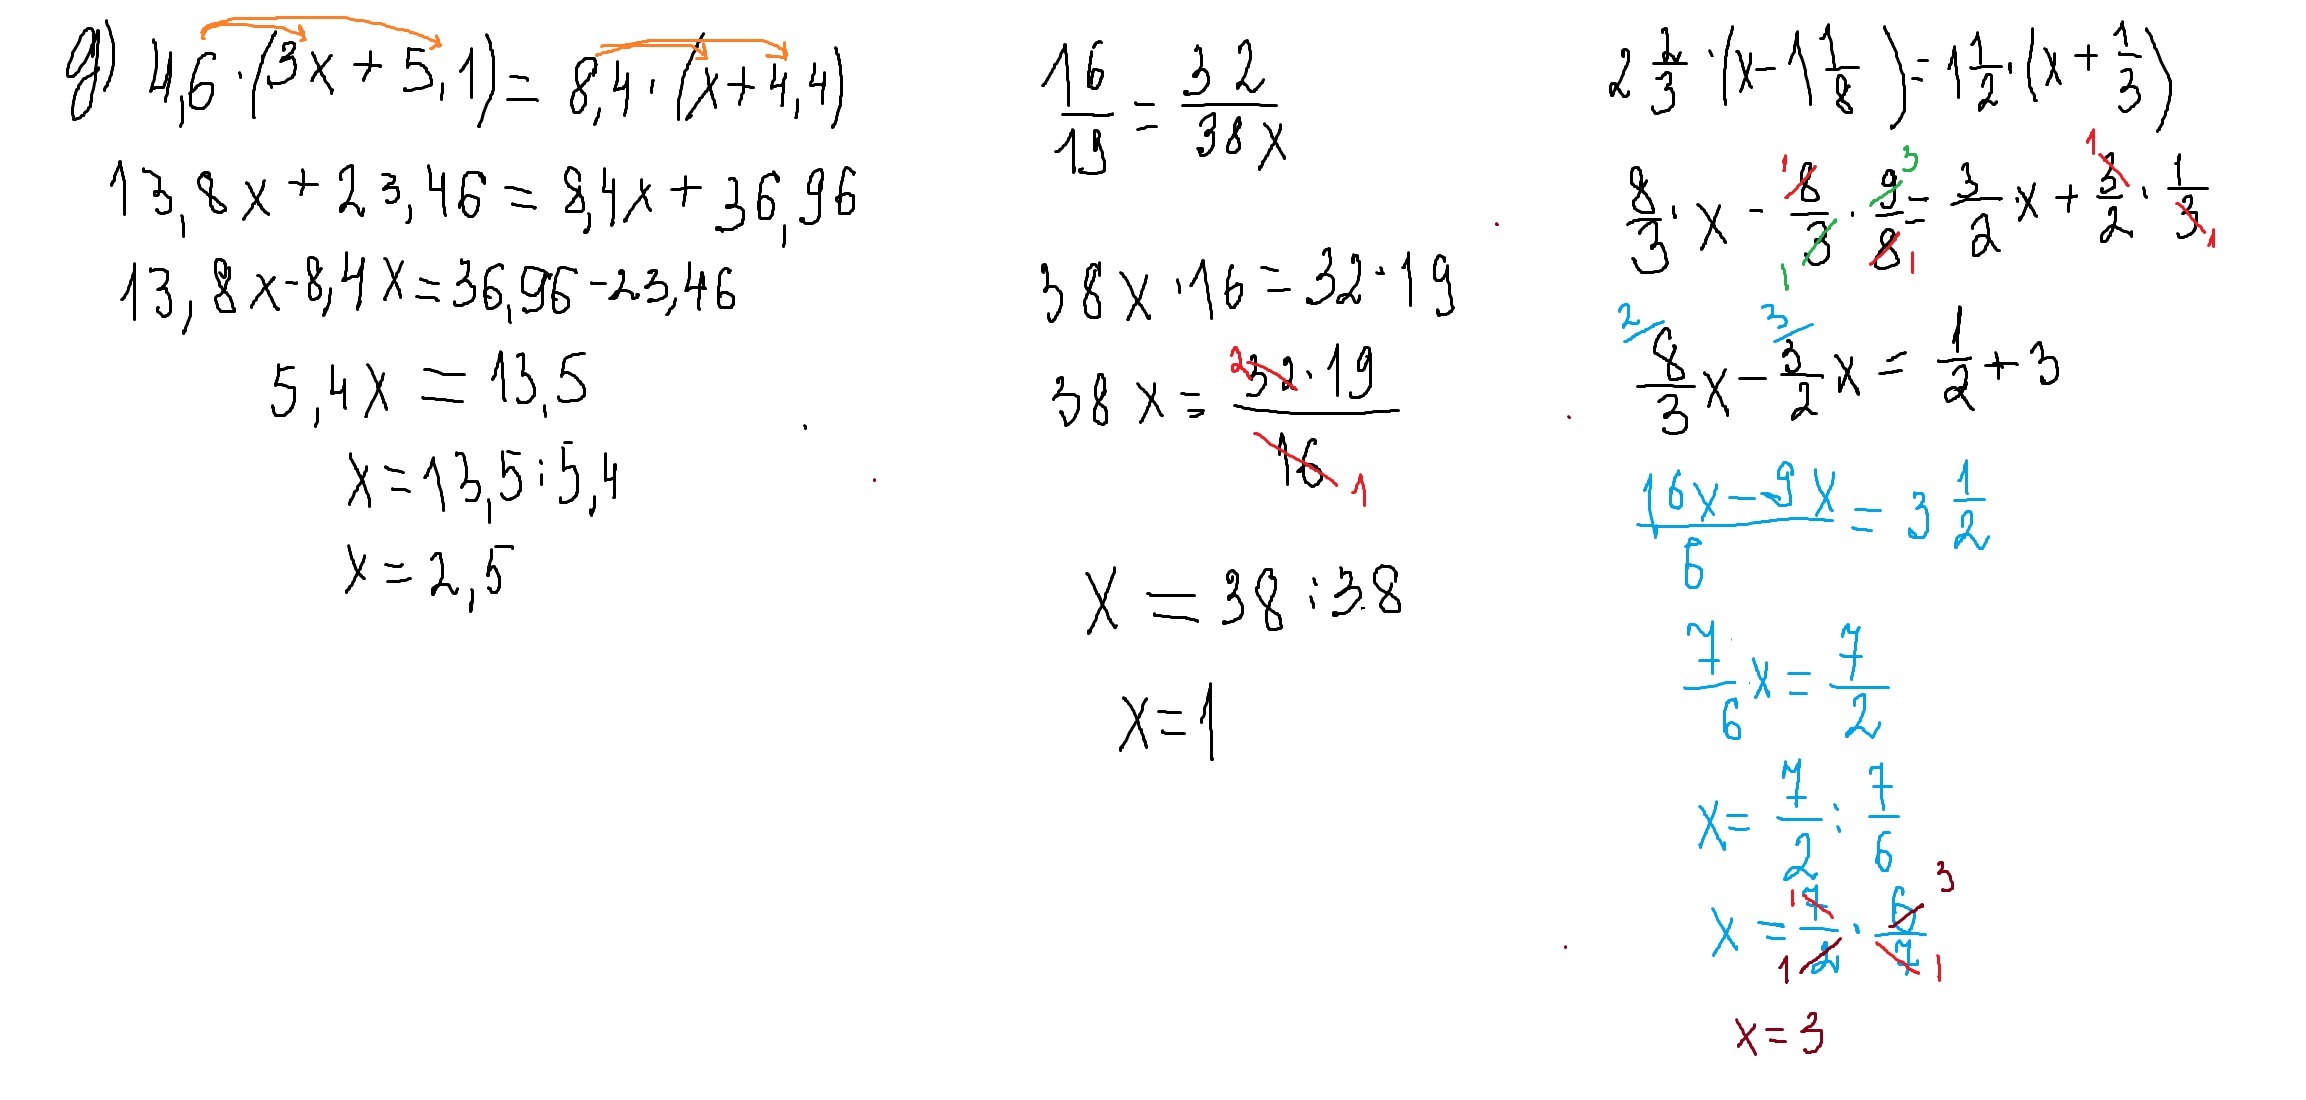 g) 4,6·(3x+5,1)=8,4·(x+4,4)
13,8x+23,46=8,4x+36,96
13,8x-8,4x=36,96-23,46
5,4x=13,5
x=13,5:5,4
x=2,5
16/19=32/38x
38x·16=32·19
38x=32·19/16 2 1
x=38:38
x=1
2 2/3·(x-1 1/8)=1 1/2·(x+1/3)
8/3·x-8/3·9/8=3/2·x+3/2·1/3 1 3 1 1 1 1
8/3x-3/2x=1/2+3 2 3
16x-9x/6=3 1/2
7/6x=7/2
x=7/2:7/6
x=7/2·6/7 1 3 1 1
x=3